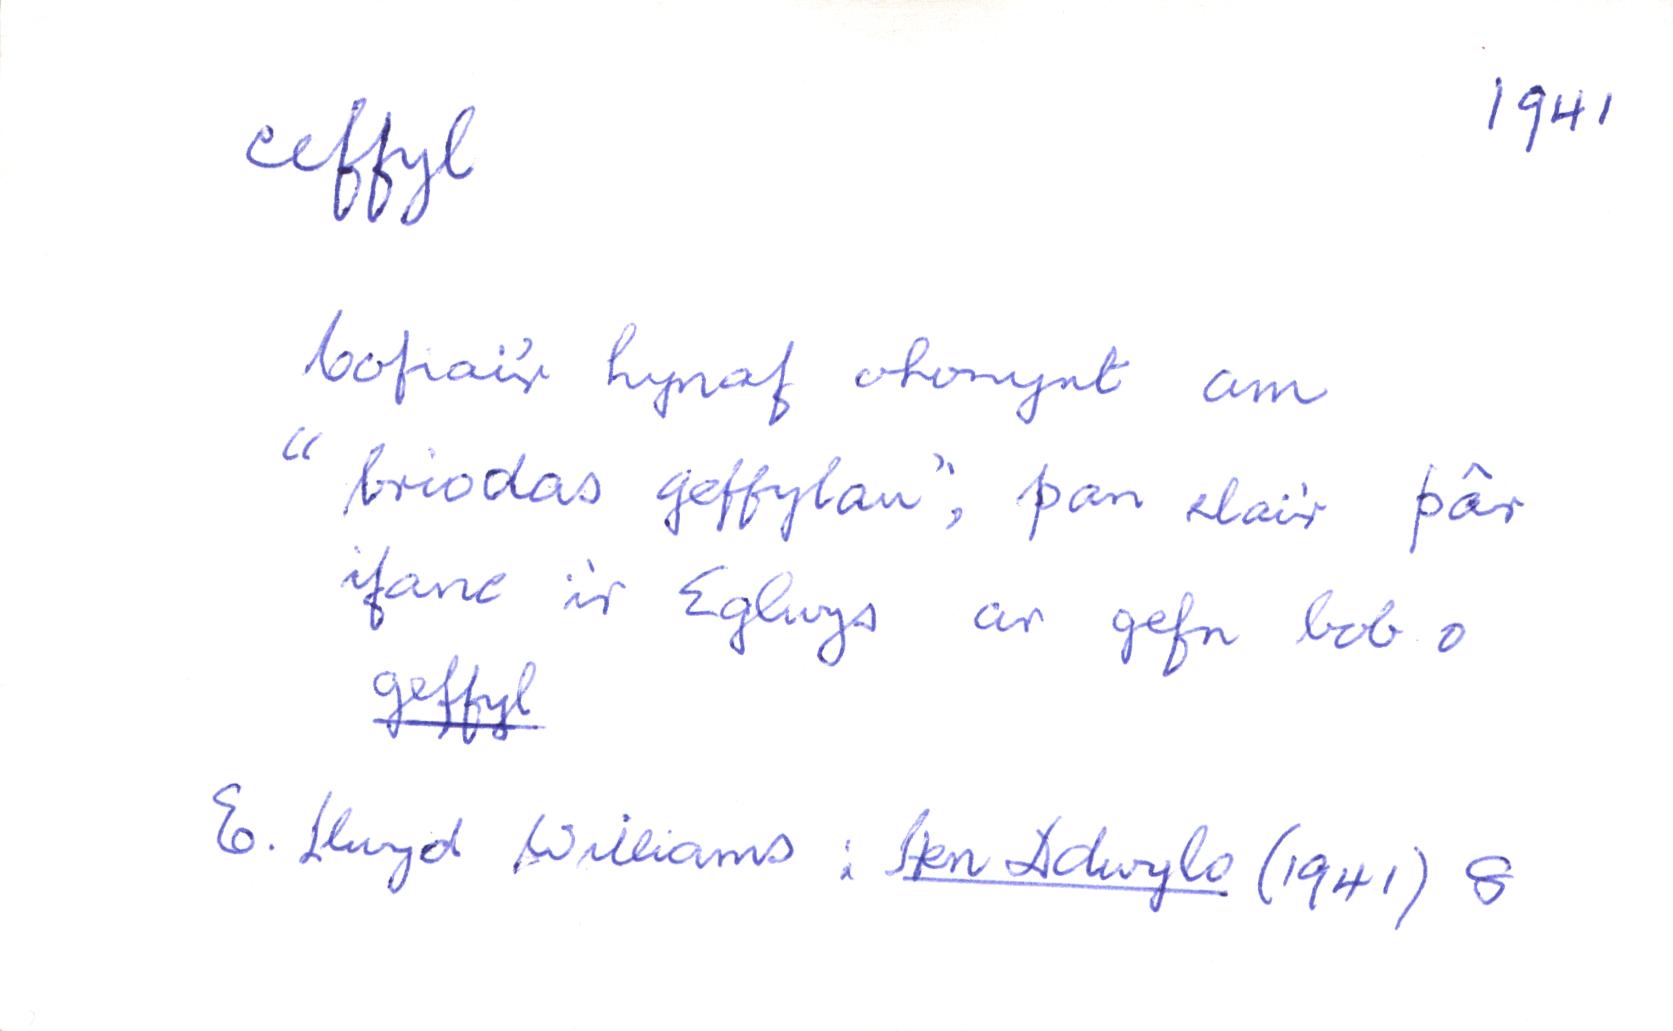 ceffyl
1941
Cofiai'r hynaf ohonynt am
"briodas geffylau", pan elai'r pâr
ifanc i'r Eglwys ar gefn bob o
geffyl
E. Llwyd Williams : Hen Ddwylo (1941) 8